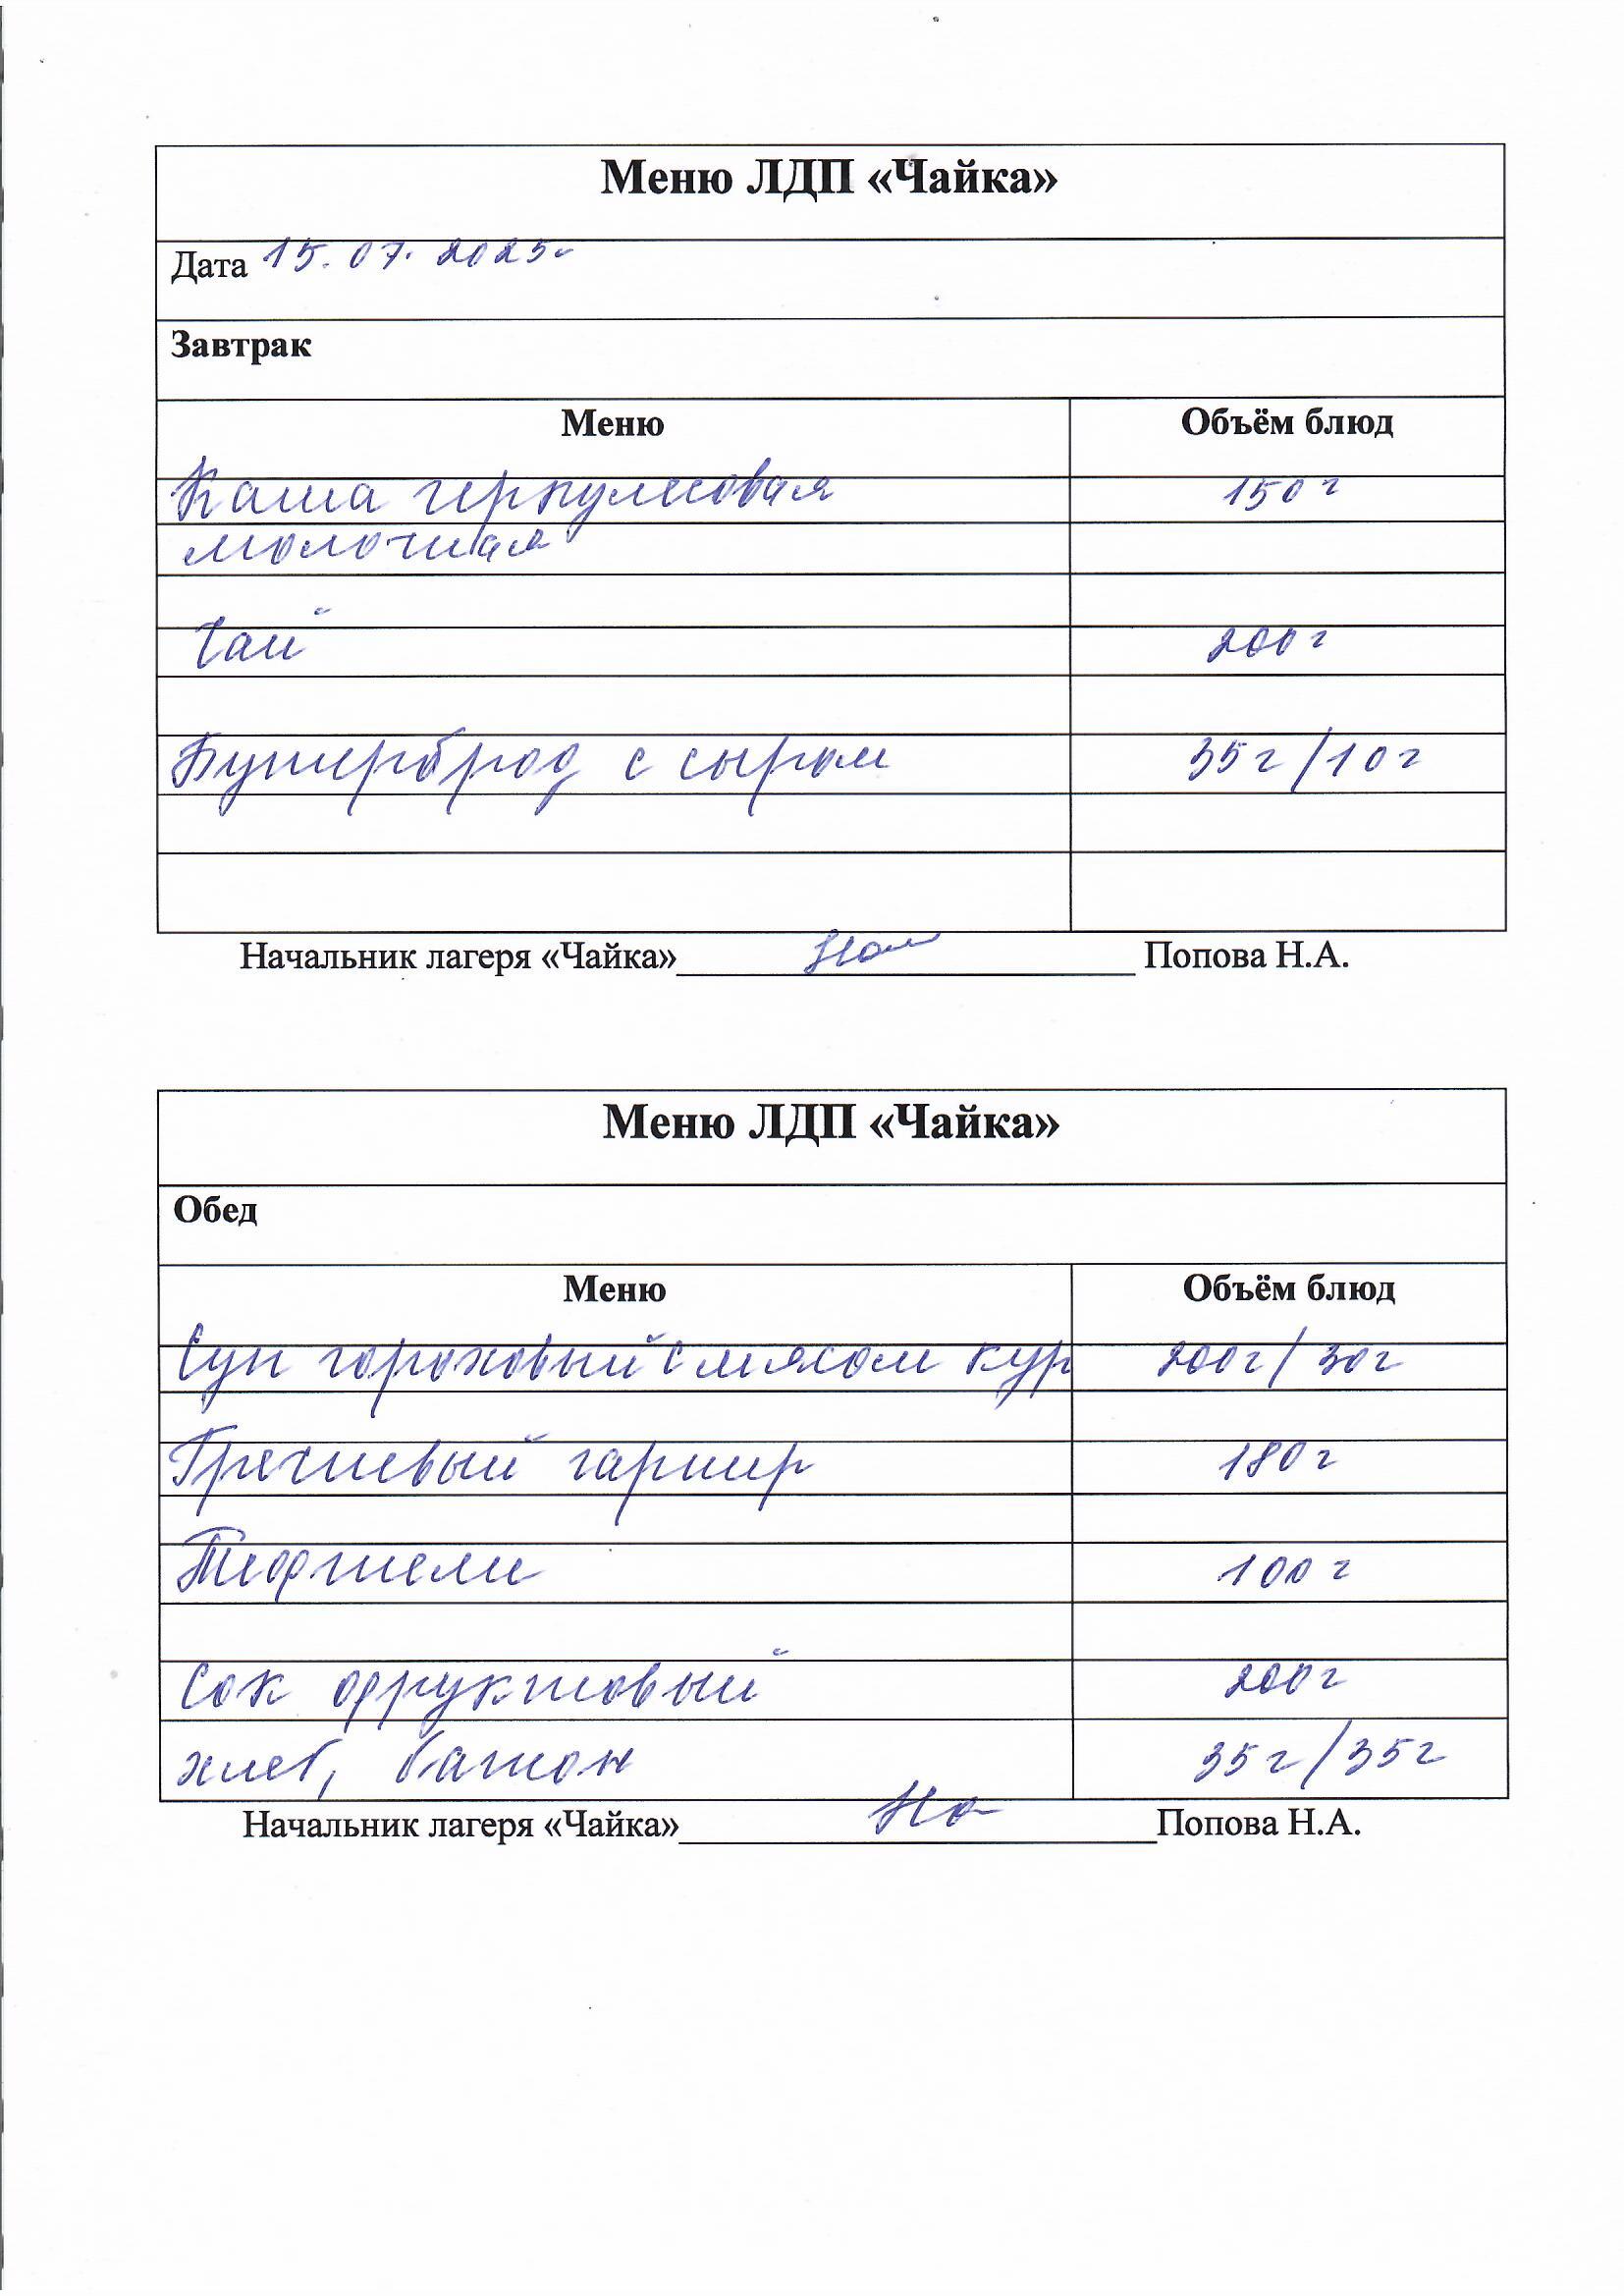 Меню ЛДП «Чайка»
Дата 15.07.2025г
Завтрак
Меню Объём блюд
Каша геркулесовая 150г
молочная
Чай 200г
Бутерброд с сыром 35г/10г
Начальник лагеря «Чайка» Попова Н.А.
Меню ЛДП «Чайка»
Обед
Меню Объём блюд
Суп гороховый с мясом кур 200г/30г
Гречневый гарнир 180г
Тефтели 100г
Сок фруктовый 200г
хлеб, батон 35г/35г
Начальник лагеря «Чайка» Попова Н.А.